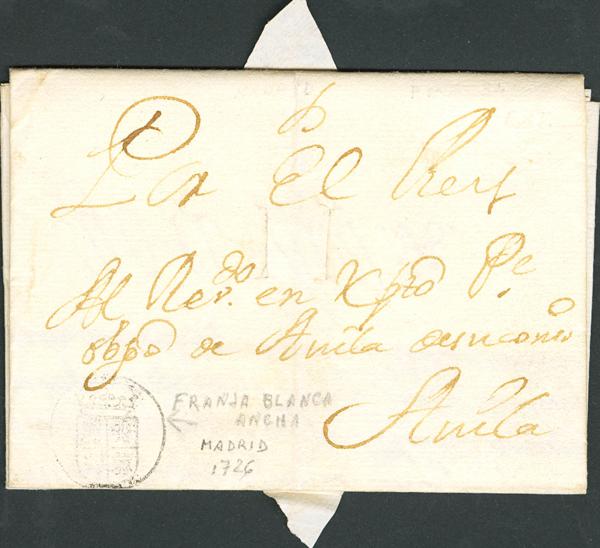 Por El Rey
Al Rev.do en Xpto Pe
obpo de Avila de su cons
Avila
FRANJA BLANCA
ANCHA
MADRID
1726